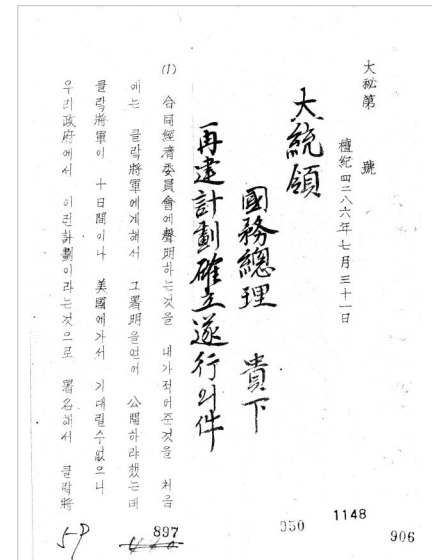 大秘第 號
檀紀四二八六年七月三十一日
大統領
國務總理 貴下
再建計劃確立遂行의件
(1) 合同經濟委員會에聲明하는것을 내가적어준것을 처음
에는 클락將軍에게해서 그署明을얻어 公開하라했는데
클락將軍이 十日間이나 美國에가서 기대릴수없으니
우리政府에서 이런計劃이라는것으로 署名해서 클락將
5-9
897
950
1148
906